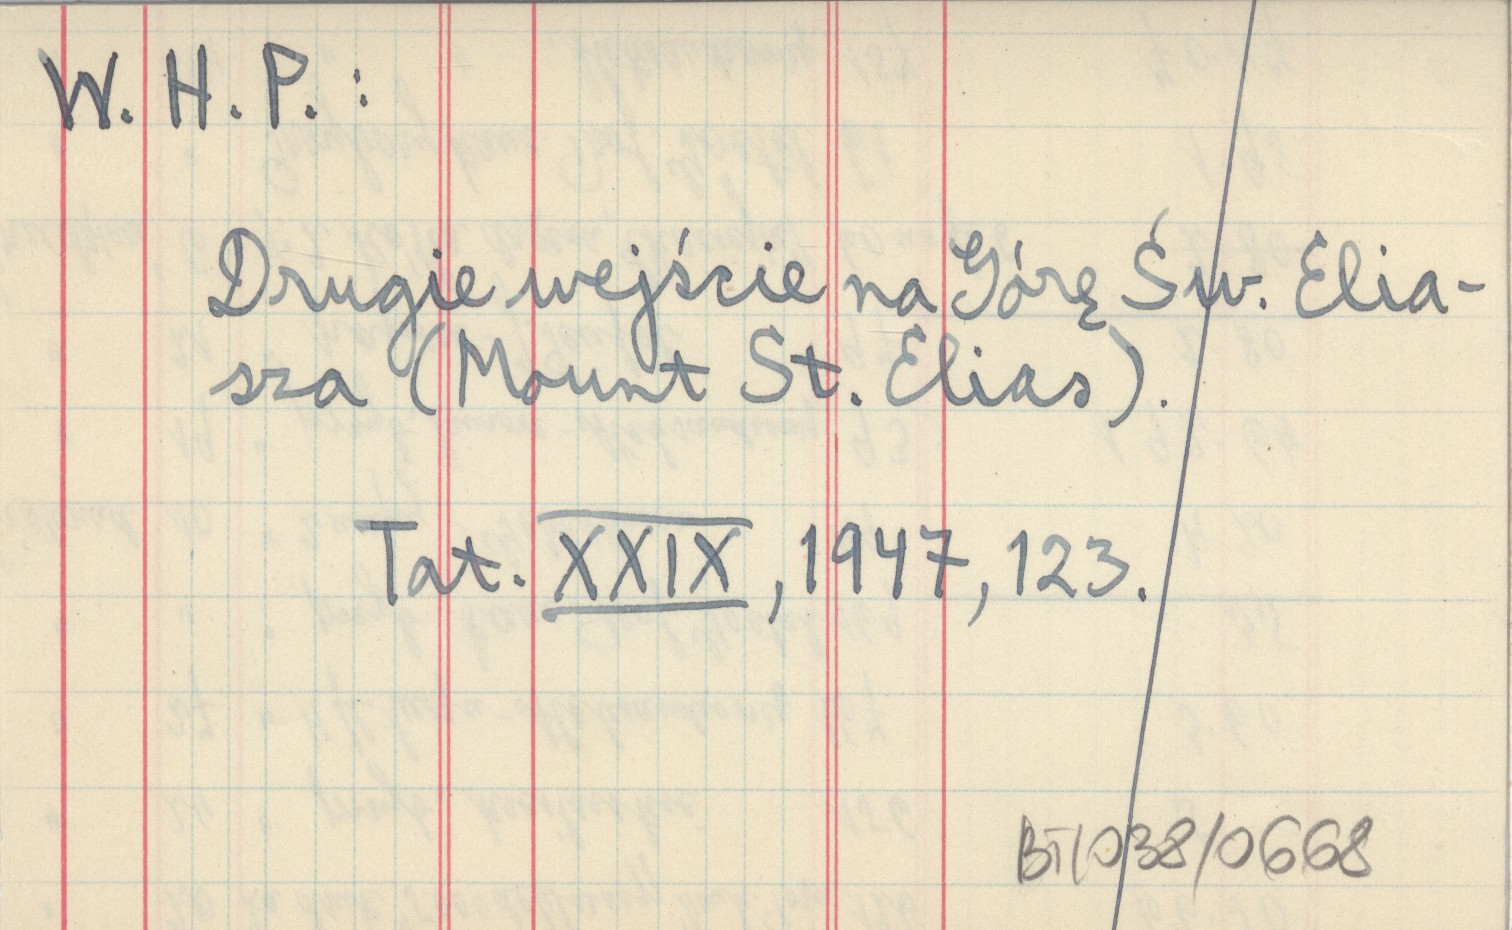 W. H. P. :
Drugie wejście na Górę Św. Elia-
sza (Mount St. Elias).
Tat. XXIX, 1947, 123.
BT/038/0668